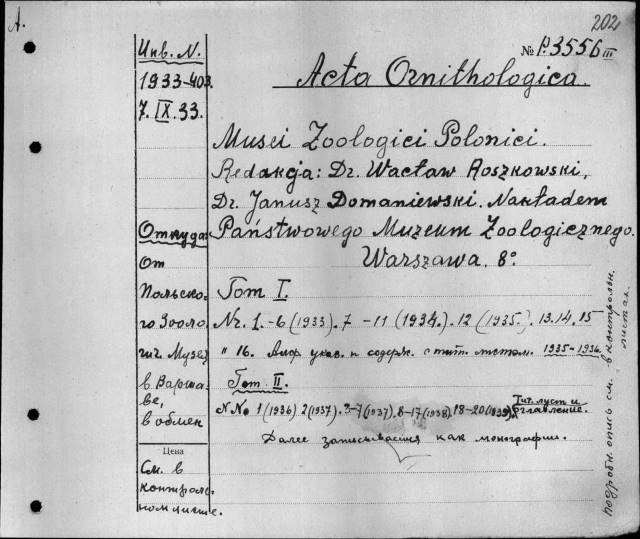 A.
202
Инв. N.
№ P.3556 III
1933-403.
7. IX. 33.
Acta Ornithologica.
Musei Zoologici Polonici.
Redakcja: Dr. Wacław Roszkowski,
Dr. Janusz Domaniewski. Nakładem
Państwowego Muzeum Zoologicznego.
Warszawa. 8°.
Откуда:
От
Польско-
го Зооло
гич. Музея
в Варша-
ве,
в обмен
Цена
См. в
контроль-
ном листе.
Tom I.
Nr. 1.-6 (1933). 7-11 (1934). 12 (1935). 13.14.15
" 16. Алф. указ. и содерж. с тит. листом. 1935-1936.
Tom II.
N No 1 (1936) 2 (1937). 3-7 (1937). 8-17 (1938). 18-20 (1939) Тит. лист и
оглавление.
Далее записывается как монографии.
подробн. опись см. в контрольн.
листах.